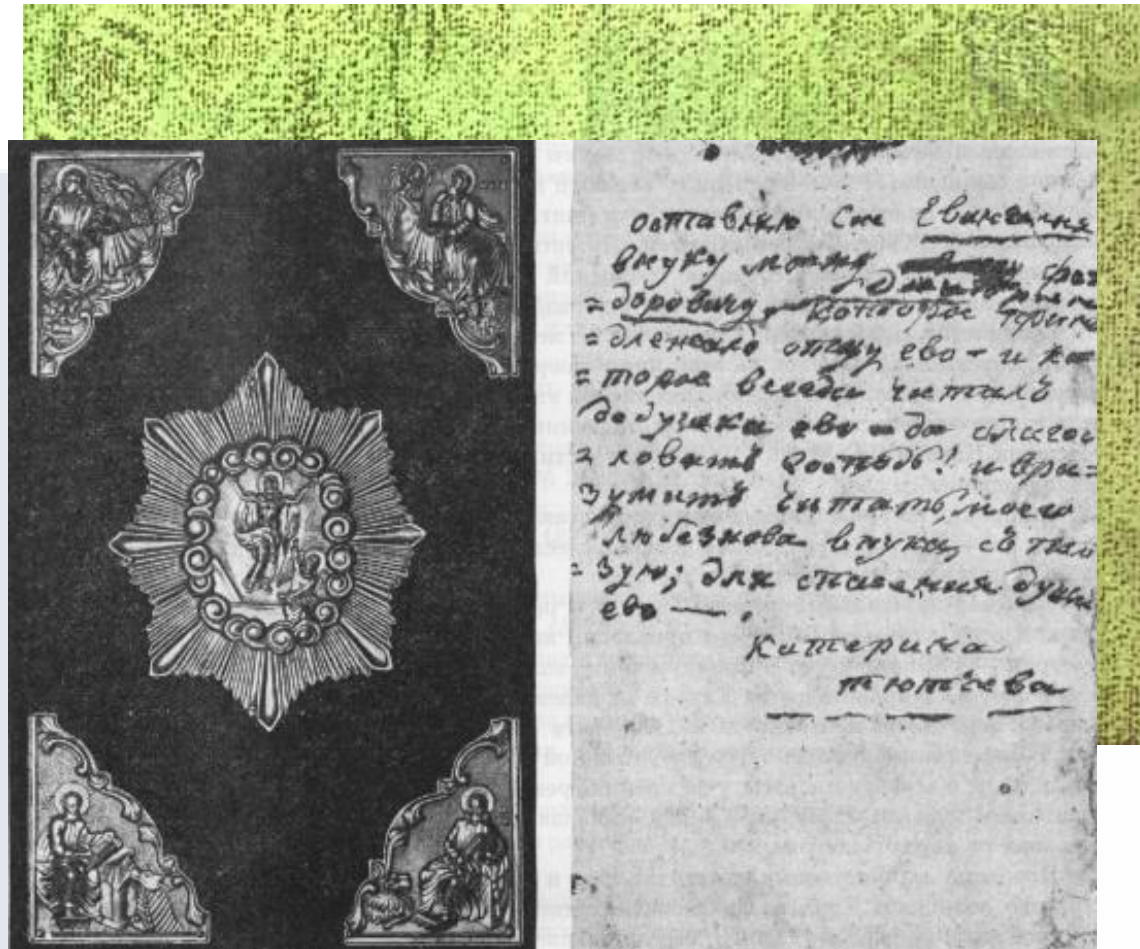 оставляю сие Евангелия
внуку моему
=доровичу, которое прина
=длежало отцу ево – и ко
=торое всегда читалъ
дедушка ево – да благос
=ловитъ господь! и вра=
зумитъ читать, моего
любезнова внука,
=зую; для спасения души
ево — .
Катерина
тютчева